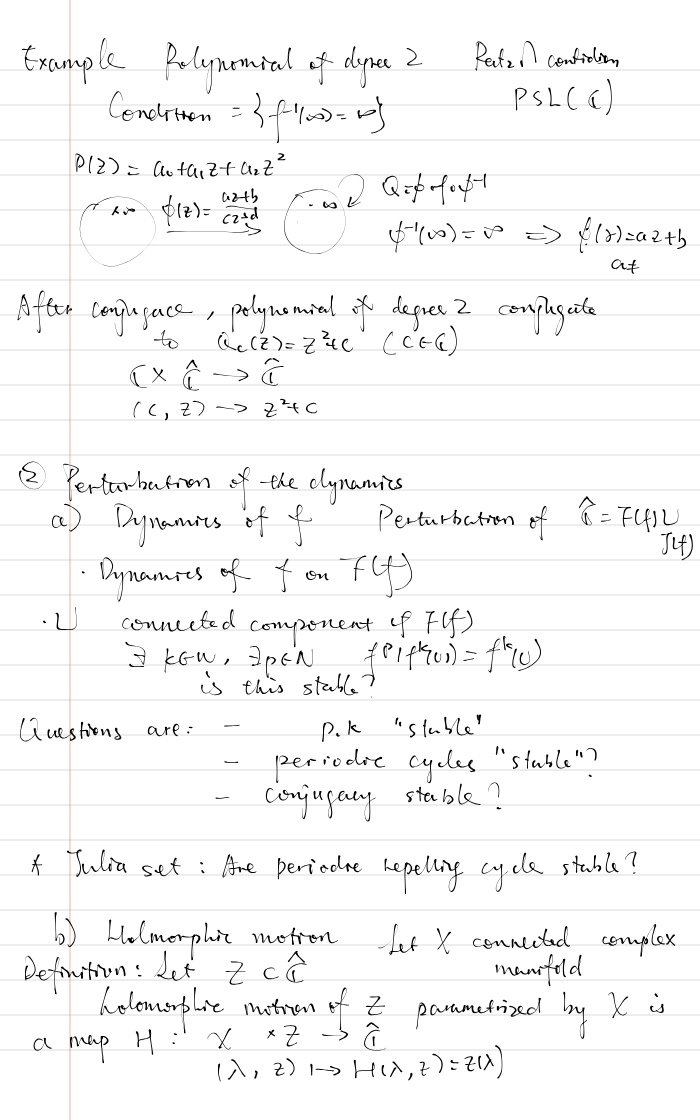 Example Polynomial of degree 2 Rat2 ∩ condition
Condition = {f⁻¹(∞) = ∞} PSL(ℂ)
P(z) = a₀+a₁z+a₂z²
x∞ ϕ(z) = az+b / cz+d · ∞ Q=ϕ∘f∘ϕ⁻¹
ϕ⁻¹(∞) = ∞ ⟹ ϕ(z)=az+b
a≠
After conjugace, polynomial of degree 2 conjugate
to Qc(z)=z²+c (c∈ℂ)
ℂ × Ĉ → Ĉ
(c, z) → z²+c
② Perturbation of the dynamics
a) Dynamics of f Perturbation of Ĉ = F(f)∪
J(f)
· Dynamics of f on F(f)
· U connected component of F(f)
∃ k∈ℕ, ∃p∈ℕ fᵖ(fᵏ(U)) = fᵏ(U)
is this stable?
Questions are: – p.k "stable"
– periodic cycles "stable"?
– conjugacy stable?
* Julia set : Are periodic repelling cycle stable?
b) Holmorphic motion Let X connected complex
manifold
Definition: Let Z ⊂ Ĉ
holomorphic motion of Z parametrized by X is
a map H : X × Z → Ĉ
(λ, z) ↦ H(λ, z) = z(λ)